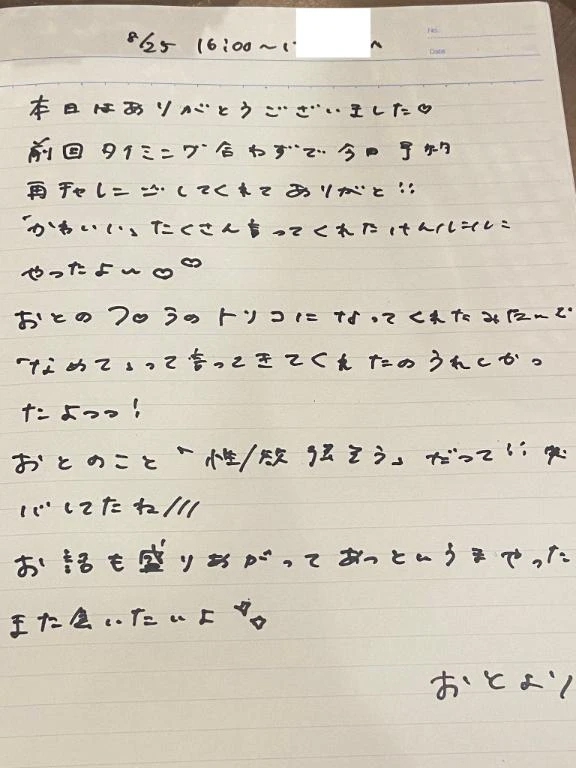 No.
Date
8/25 16:00~1
本日はありがとうございました♡
前回タイミング合わずで今日予約
再チャレンジしてくれてありがと!!
「かわいい」たくさん言ってくれたけんルンルン
やったよ〜♡♡
おとのフロうのトリコになってくれたみたいで
「なめて」って言ってきてくれたのうれしかっ
たよっっ!
おとのこと「性/欲強そう」だって!!
バしてたね///
お話も盛りあがってあっというまやった
また会いたいよ
おとより